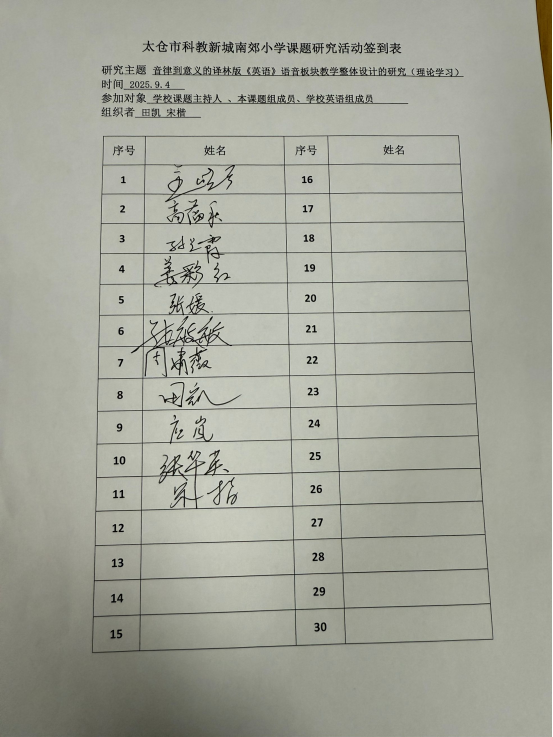 太仓市科教新城南郊小学课题研究活动签到表
研究主题 音律到意义的译林版《英语》语音板块教学整体设计的研究（理论学习）
时间 2025.9.4
参加对象 学校课题主持人 、本课题组成员、学校英语组成员
组织者 田凯 宋楷
序号 姓名 序号 姓名
1 16
2 高荷秋 17
3 18
4 姜彩红 19
5 张媛 20
6 陆敏敏 21
7 周婧薇 22
8 田凯 23
9 应岚 24
10 张华英 25
11 宋楷 26
12 27
13 28
14 29
15 30